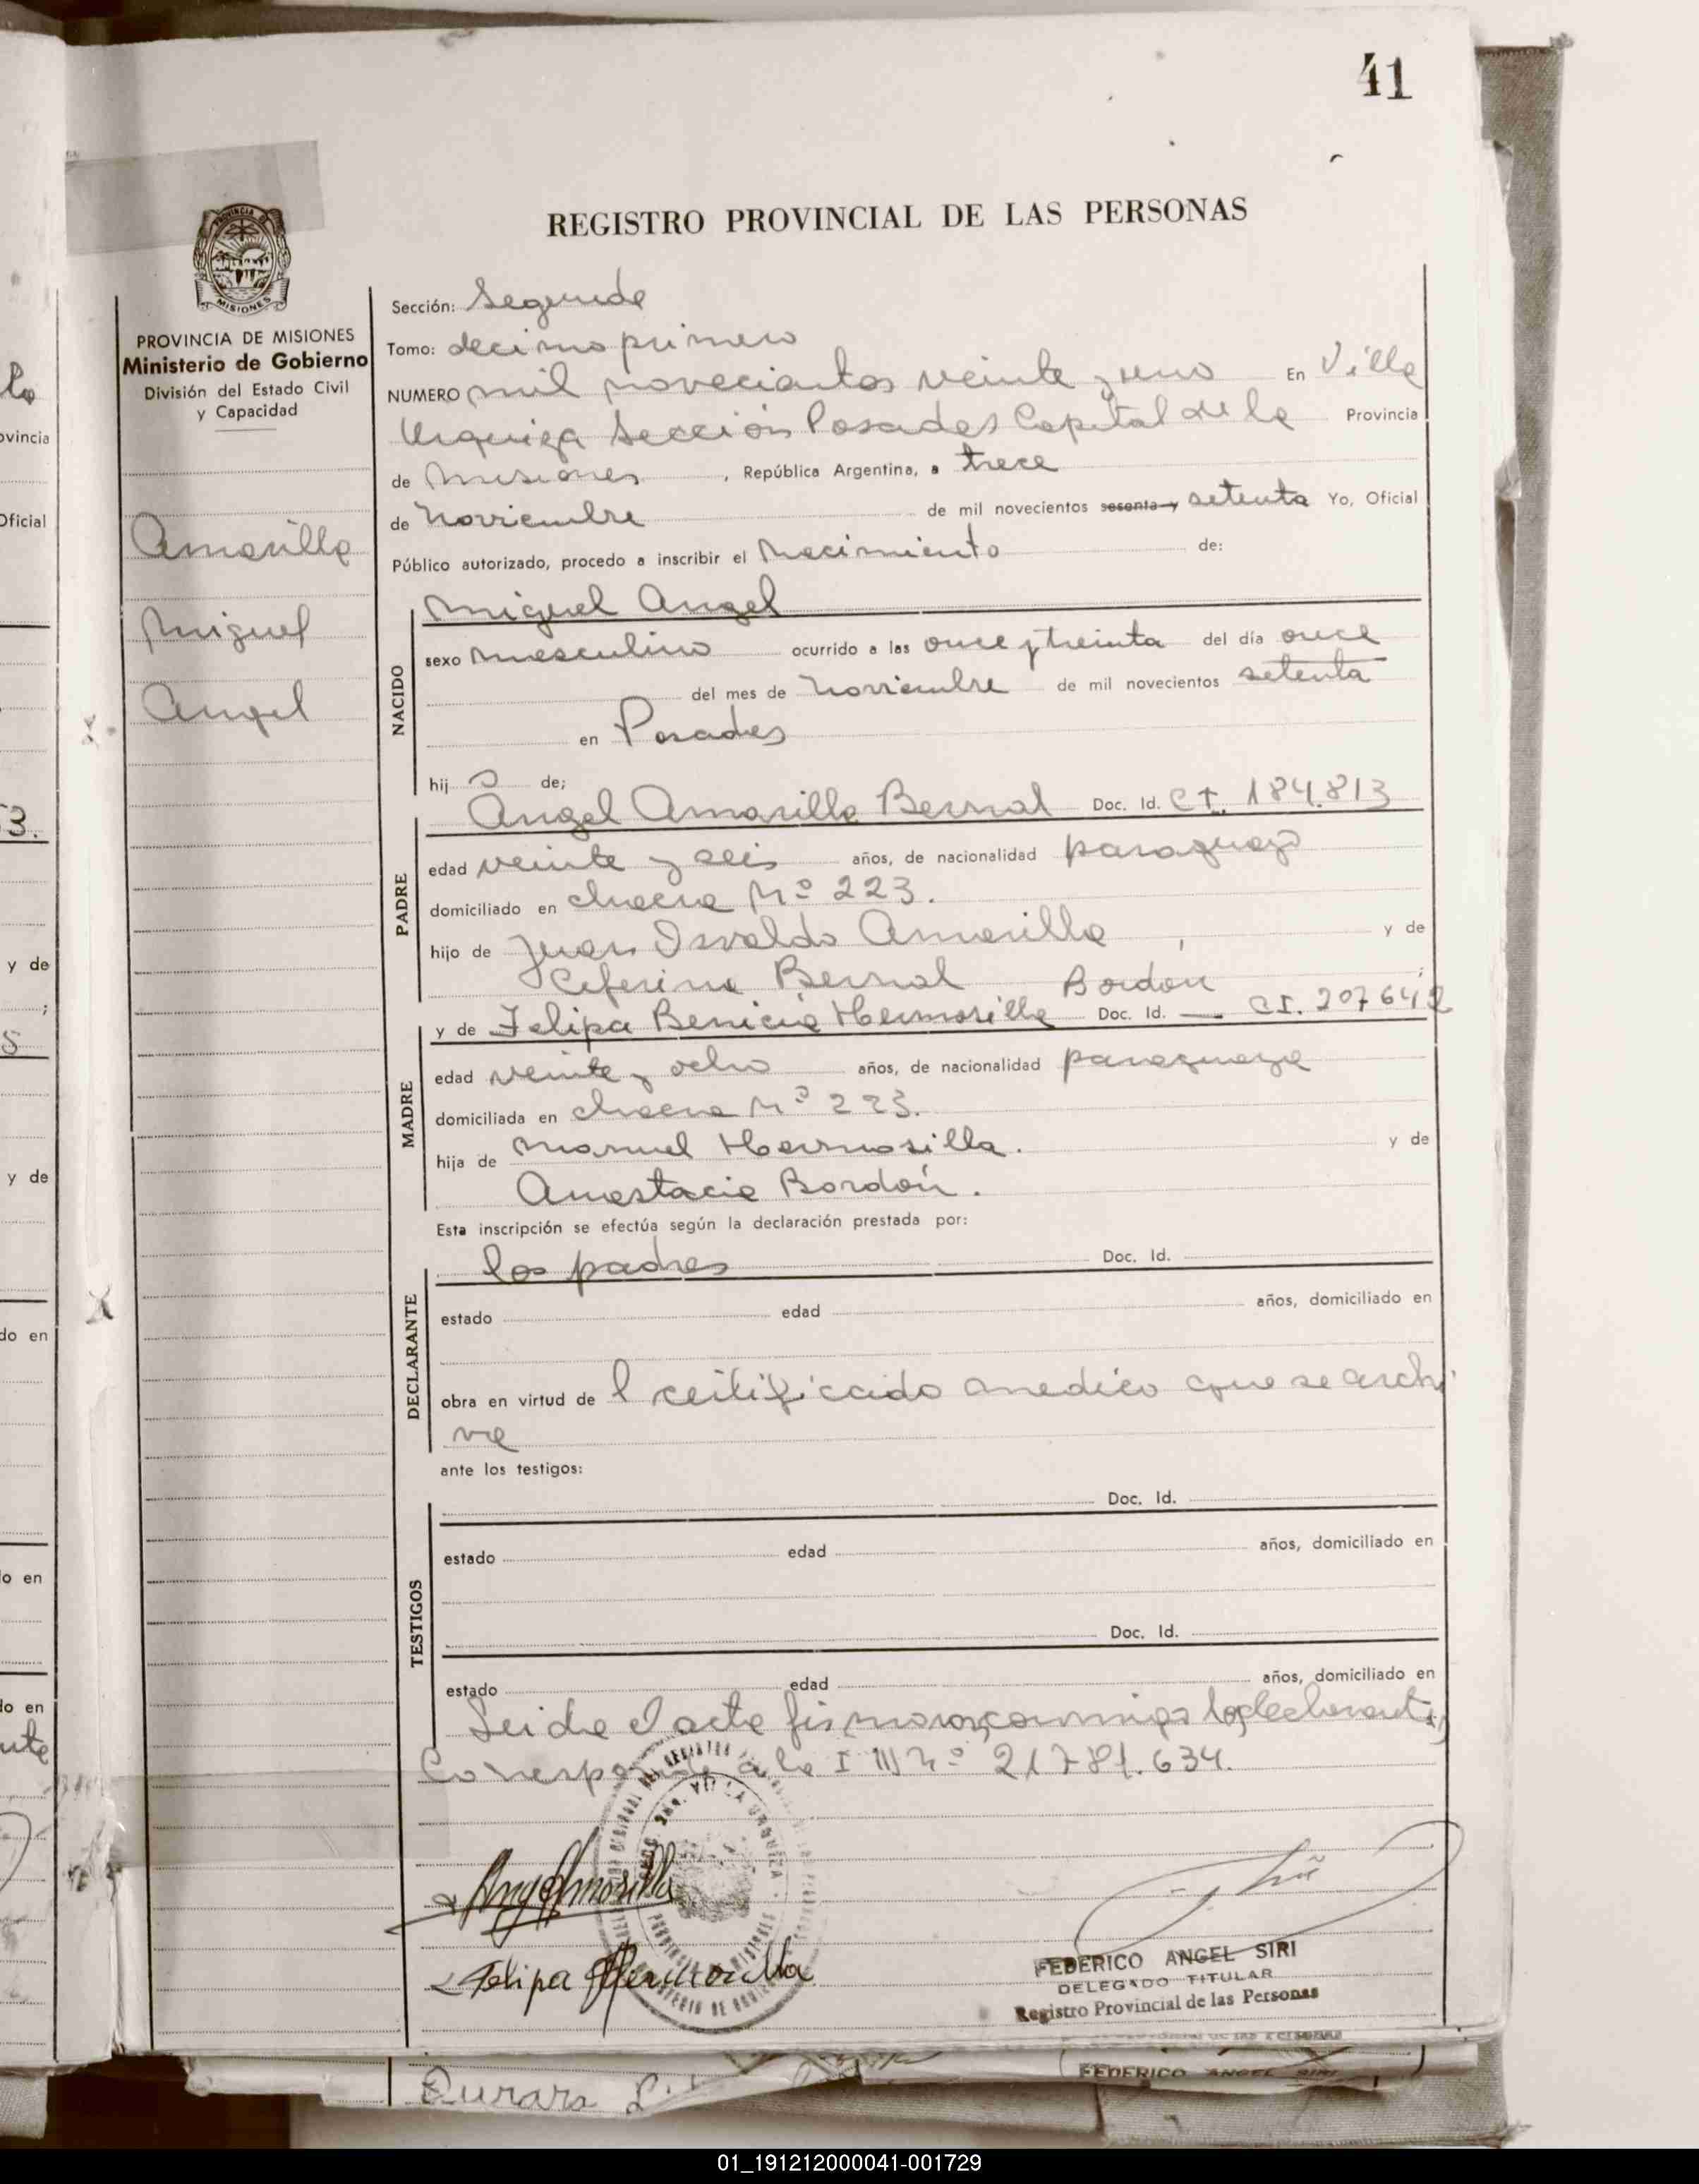 41
REGISTRO PROVINCIAL DE LAS PERSONAS
MISIONES
PROVINCIA DE MISIONES
Ministerio de Gobierno
División del Estado Civil
y Capacidad
Amarilla
Miguel
Angel
Sección: Segunda
Tomo: decimo primero
NUMERO mil novecientos veinte y uno En Villa
Urquiza Sección Posadas Capital de la Provincia
de Misiones, República Argentina, a trece
de Noviembre de mil novecientos sesenta y setenta Yo, Oficial
Público autorizado, procedo a inscribir el Nacimiento de:
Miguel Angel
NACIDO
sexo masculino ocurrido a las once y treinta del día once
del mes de Noviembre de mil novecientos setenta
en Posadas
hij o de;
Angel Amarilla Bernal Doc. Id. CI. 184.813
PADRE
edad veinte y seis años, de nacionalidad paraguayo
domiciliado en chacra Nº 223.
hijo de Juan Osvaldo Amarilla, y de
Ceferina Bernal ;
Bordon
y de Felipa Benicia Hermosilla Doc. Id. — CI. 207642
MADRE
edad veinte y ocho años, de nacionalidad paraguaya
domiciliada en chacra Nº 223.
hija de Manuel Hermosilla. y de
Anastacia Bordón.
Esta inscripción se efectúa según la declaración prestada por:
los padres Doc. Id.
DECLARANTE
estado edad años, domiciliado en
obra en virtud de l certificado medico que se archi
va
ante los testigos:
Doc. Id.
TESTIGOS
estado edad años, domiciliado en
Doc. Id.
estado edad años, domiciliado en
Leida el acta firmaron conmigo los declarantes
Corresponde a la I M Nº 21781.634.
Angel Amarilla
Felipa Hermosilla
FEDERICO ANGEL SIRI
DELEGADO TITULAR
Registro Provincial de las Personas
FEDERICO ANGEL SIRI
01_191212000041-001729